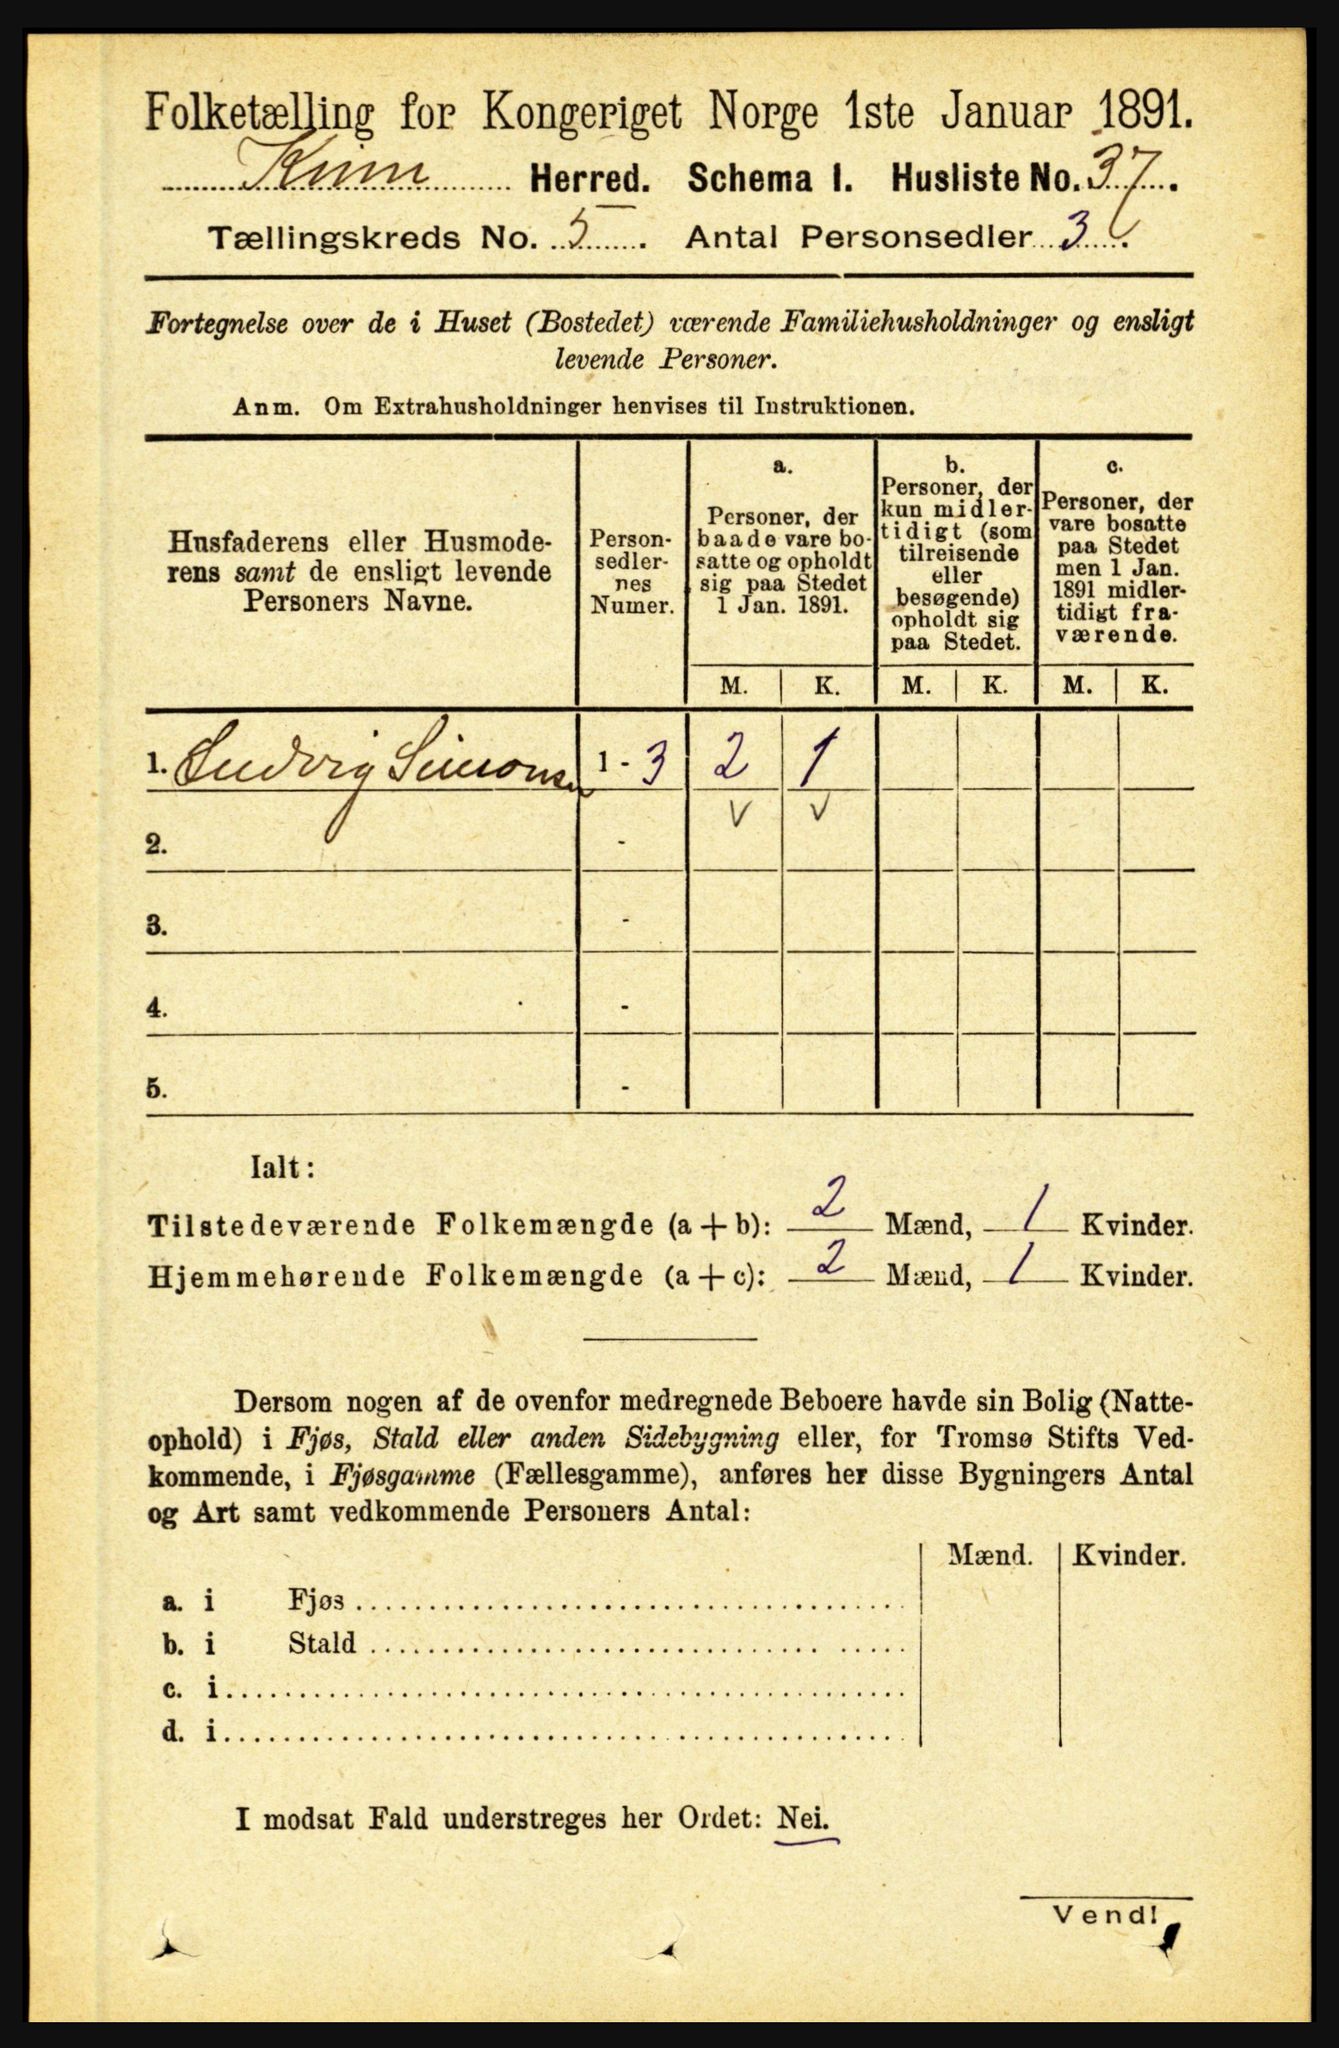 Folketælling for Kongeriget Norge 1ste Januar 1891.
Kinn Herred. Schema I. Husliste No. 37.
Tællingskreds No. 5. Antal Personsedler 3.
Fortegnelse over de i Huset (Bostedet) værende Familiehusholdninger og ensligt
levende Personer.
Anm. Om Extrahusholdninger henvises til Instruktionen.
Husfaderens eller Husmode-
rens samt de ensligt levende
Personers Navne.
Person-
sedler-
nes
Numer.
a.
Personer, der
baade vare bo-
satte og opholdt
sig paa Stedet
1 Jan. 1891.
b.
Personer, der
kun midler-
tidigt (som
tilreisende
eller
besøgende)
opholdt sig
paa Stedet.
c.
Personer, der
vare bosatte
paa Stedet
men 1 Jan.
1891 midler-
tidigt fra-
værende.
M. K. M. K. M. K.
1. Ludvig Simonsen 1 - 3 2 1
v v
2. -
3. -
4. -
5. -
Ialt:
Tilstedeværende Folkemængde (a + b): 2 Mænd, 1 Kvinder.
Hjemmehørende Folkemængde (a + c): 2 Mænd, 1 Kvinder.
Dersom nogen af de ovenfor medregnede Beboere havde sin Bolig (Natte-
ophold) i Fjøs, Stald eller anden Sidebygning eller, for Tromsø Stifts Ved-
kommende, i Fjøsgamme (Fællesgamme), anføres her disse Bygningers Antal
og Art samt vedkommende Personers Antal:
Mænd. Kvinder.
a. i Fjøs
b. i Stald
c. i
d. i
I modsat Fald understreges her Ordet: Nei.
Vend!